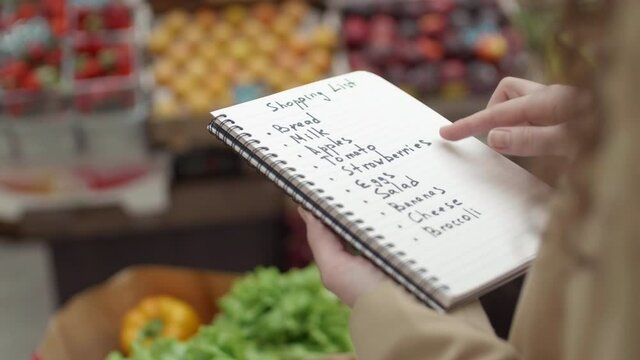 Shopping List
• Bread
• Milk
• Apples
• Tomato
• Strawberries
• Eggs
• Salad
• Bananas
• Cheese
• Broccoli